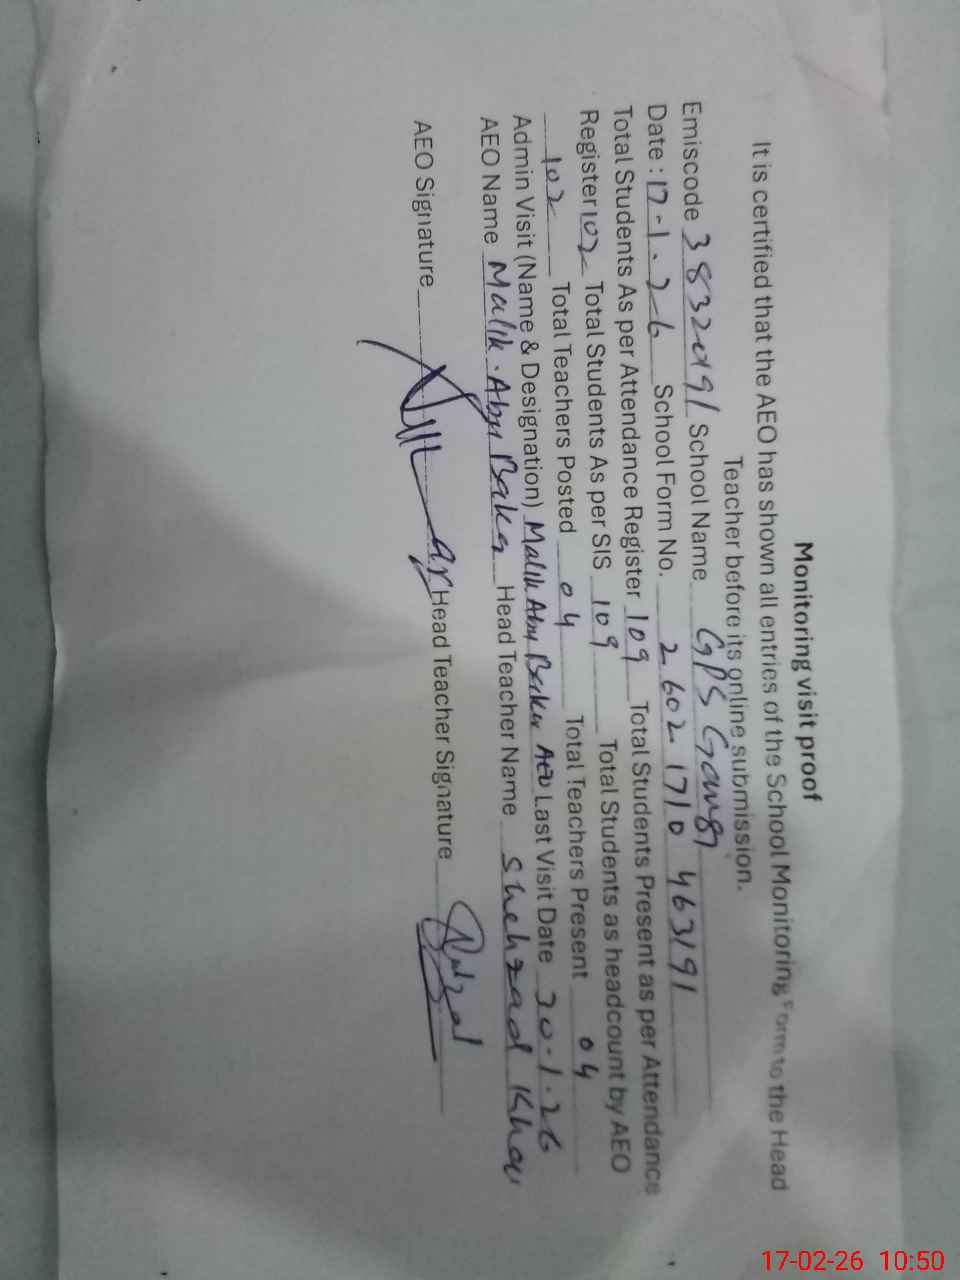 Monitoring visit proof
It is certified that the AEO has shown all entries of the School Monitoring Form to the Head
Teacher before its online submission.
Emiscode 38320191 School Name GPS Gangi
Date : 17-1.26 School Form No. 2602 1710 463191
Total Students As per Attendance Register 109 Total Students Present as per Attendance
Register 102 Total Students As per SIS 109 Total Students as headcount by AEO
102 Total Teachers Posted 04 Total Teachers Present 04
Admin Visit (Name & Designation) Malik Abu Baker AEO Last Visit Date 30.1.26
AEO Name Malik Abu Baker Head Teacher Name Shehzad Khan
AEO Signature Head Teacher Signature
17-02-26 10:50